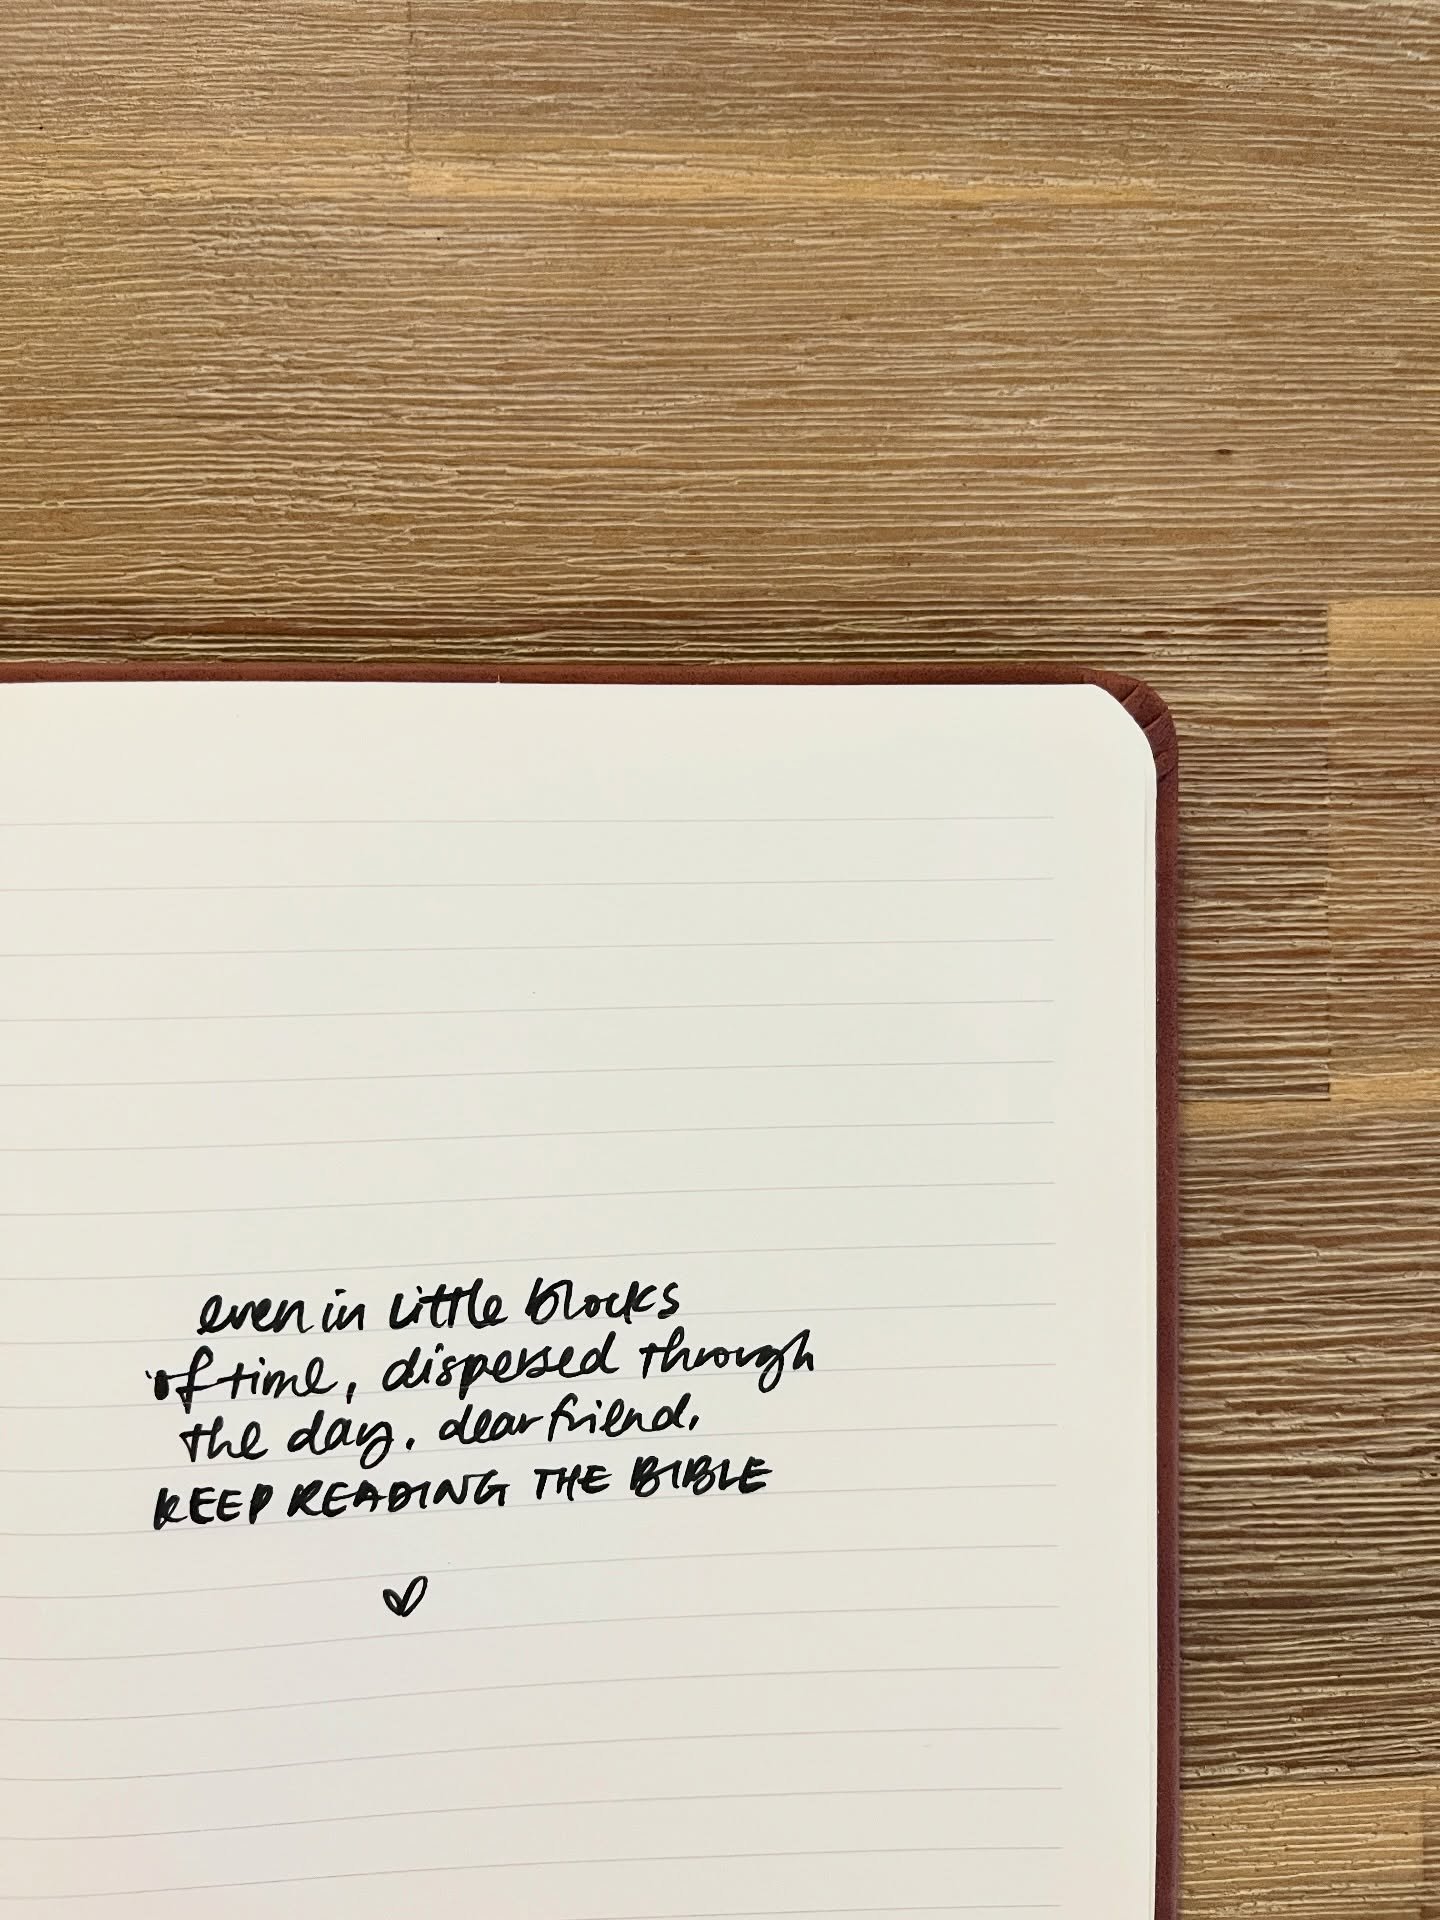 even in little blocks
of time, dispersed through
the day. dear friend,
KEEP READING THE BIBLE